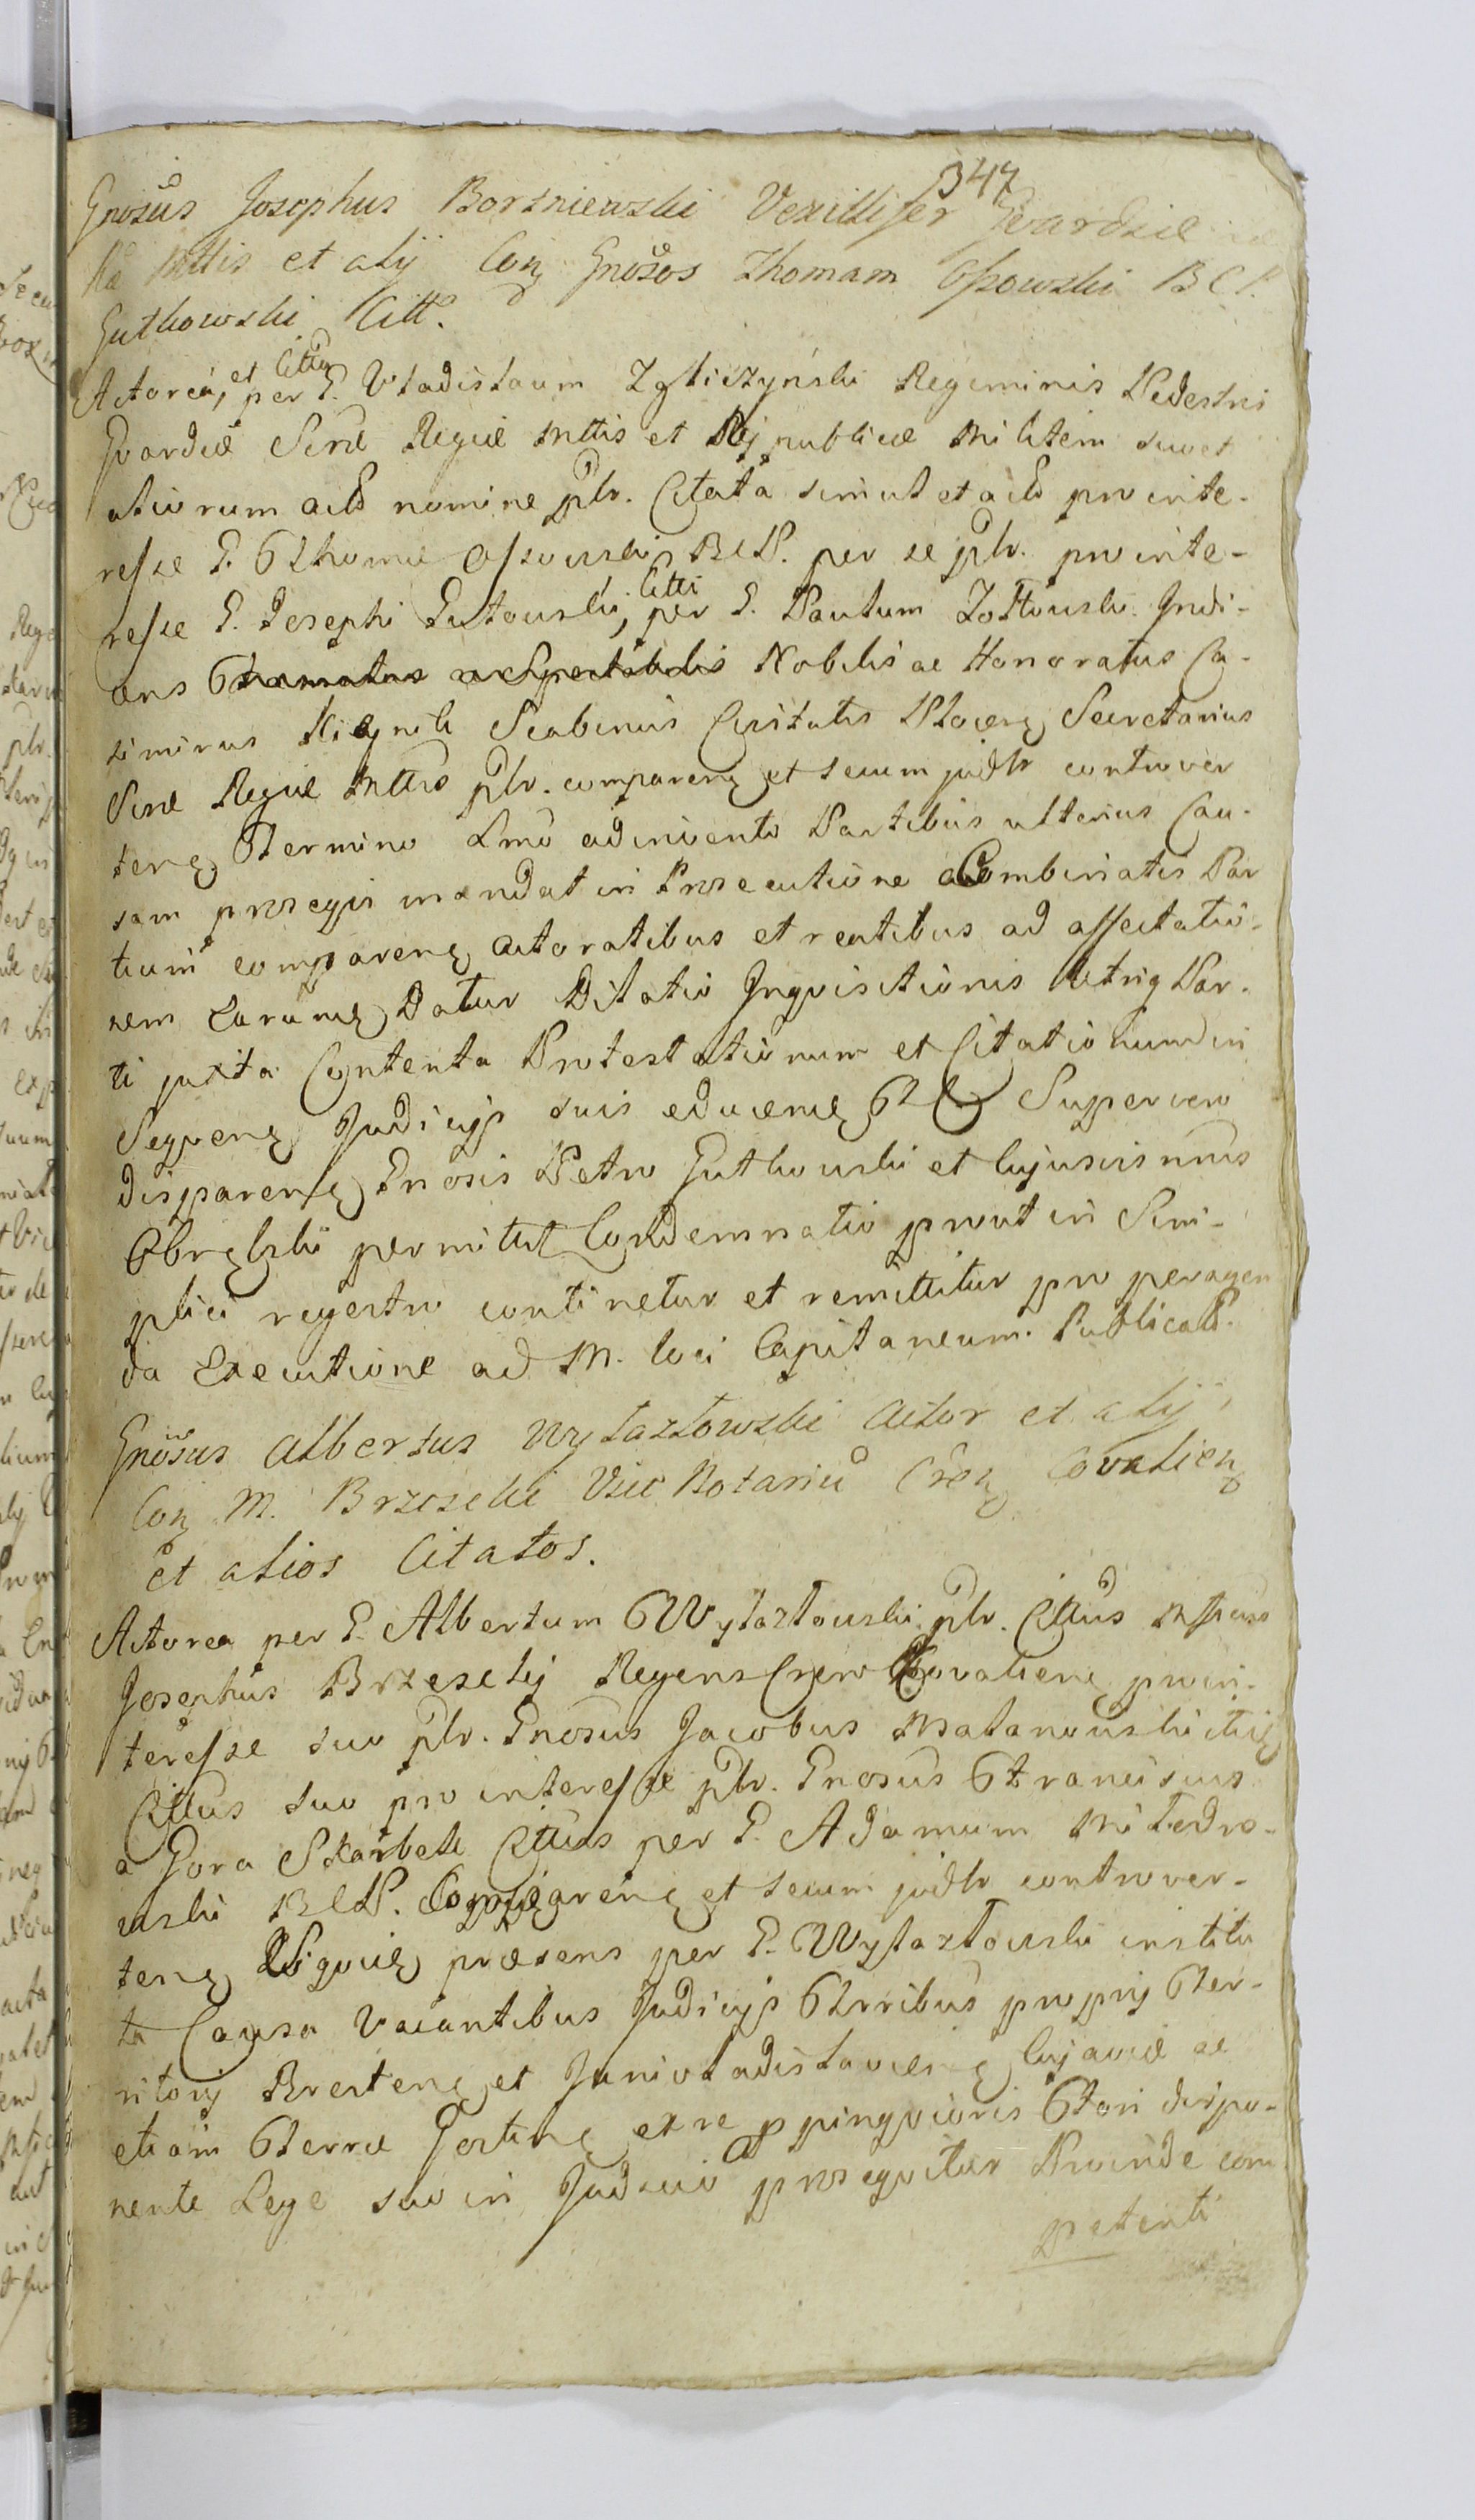 347
Gnosus Josephus Borzniewski Vexillifer Gvardiæ
Mttis et alij Con Gnosos Thomam Ossowski B C P.
Gutkowski Citt.
Actorea, et Citta per G. Vladislaum Zgliczynski Regiminis Pedestris
Gvardiæ Sræ Regiæ Mttis et Rejpublicæ Militem suo et
aliorum nomine ptr. Citata simul et pro inte-
resse G. Thomæ Ossowski BCP. per se ptr. pro inte-
resse G. Josephi Gutowski, Citti per G. Paulum Zoltowski. Judi-
cens Nobilis ac Honoratus Ca-
simirus Scabinus Civitatis Plocen Secretarius
Sræ Regiæ Mttis ptr. comparen et secum judtr controver
ten Termino adinvento Partibus ulterius Cau-
sam proseqvi mandat in Prosecutione a Combinatis Par
tium comparen actoratibus et reatibus ad affectatio-
nem earum Datur Dilatio Inqvisitionis Utriq Par-
ti juxta Contenta Protestationum et Citationum in
Seqven Judicijs suis educen Super vero
disparen Gnosis Petro Gutkowski et cujusvis nnis
Obrębski permittit Condemnatio prout in Sim-
plici regestro continetur et remittitur pro peragen
da Executione ad M. loci Capitaneum. Publicat.
Gnosus Albertus Wytaztowski Actor et alij
Con M. Brzeseki Vice Notariu Cren Covalien
et alios Citatos.
Actorea per G. Albertum Wytaztowski ptr. Cittus
Josephus Brzeseki Regens Cren Covalien pro in-
teresse suo ptr. Gnosus Jacobus Matanowski
Cittus suo pro interesse ptr. Gnosus Franciscus
a Gora Skarbek Cittus per G. Adamum Miledro-
wski BCP. Comparen et secum judtr controver-
ten præsens per G. Wytaztowski institu
ta Causa Vacantibus Judicijs Ttribus proprij Ter-
ritorij Bresten et Junivladislavien Cujaviæ ac
etiam Terræ Gostin ex re ppinqvioris Fori dispo-
nente Lege suo in Judicio proseqvitur Proinde com
petenti